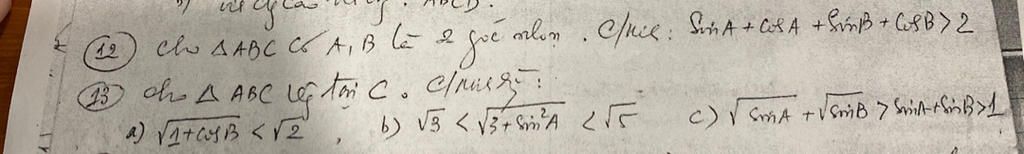 ABCD.
(12) cho △ABC có A, B là 2 góc nhọn. C/m: SinA + CosA + SinB + CosB > 2
(13) cho △ ABC tại C. C/m rằng:
a) √(1+cosB) < √2, b) √3 < √(3+Sin²A) < √5 c) √SinA + √SinB > SinA+SinB > 1